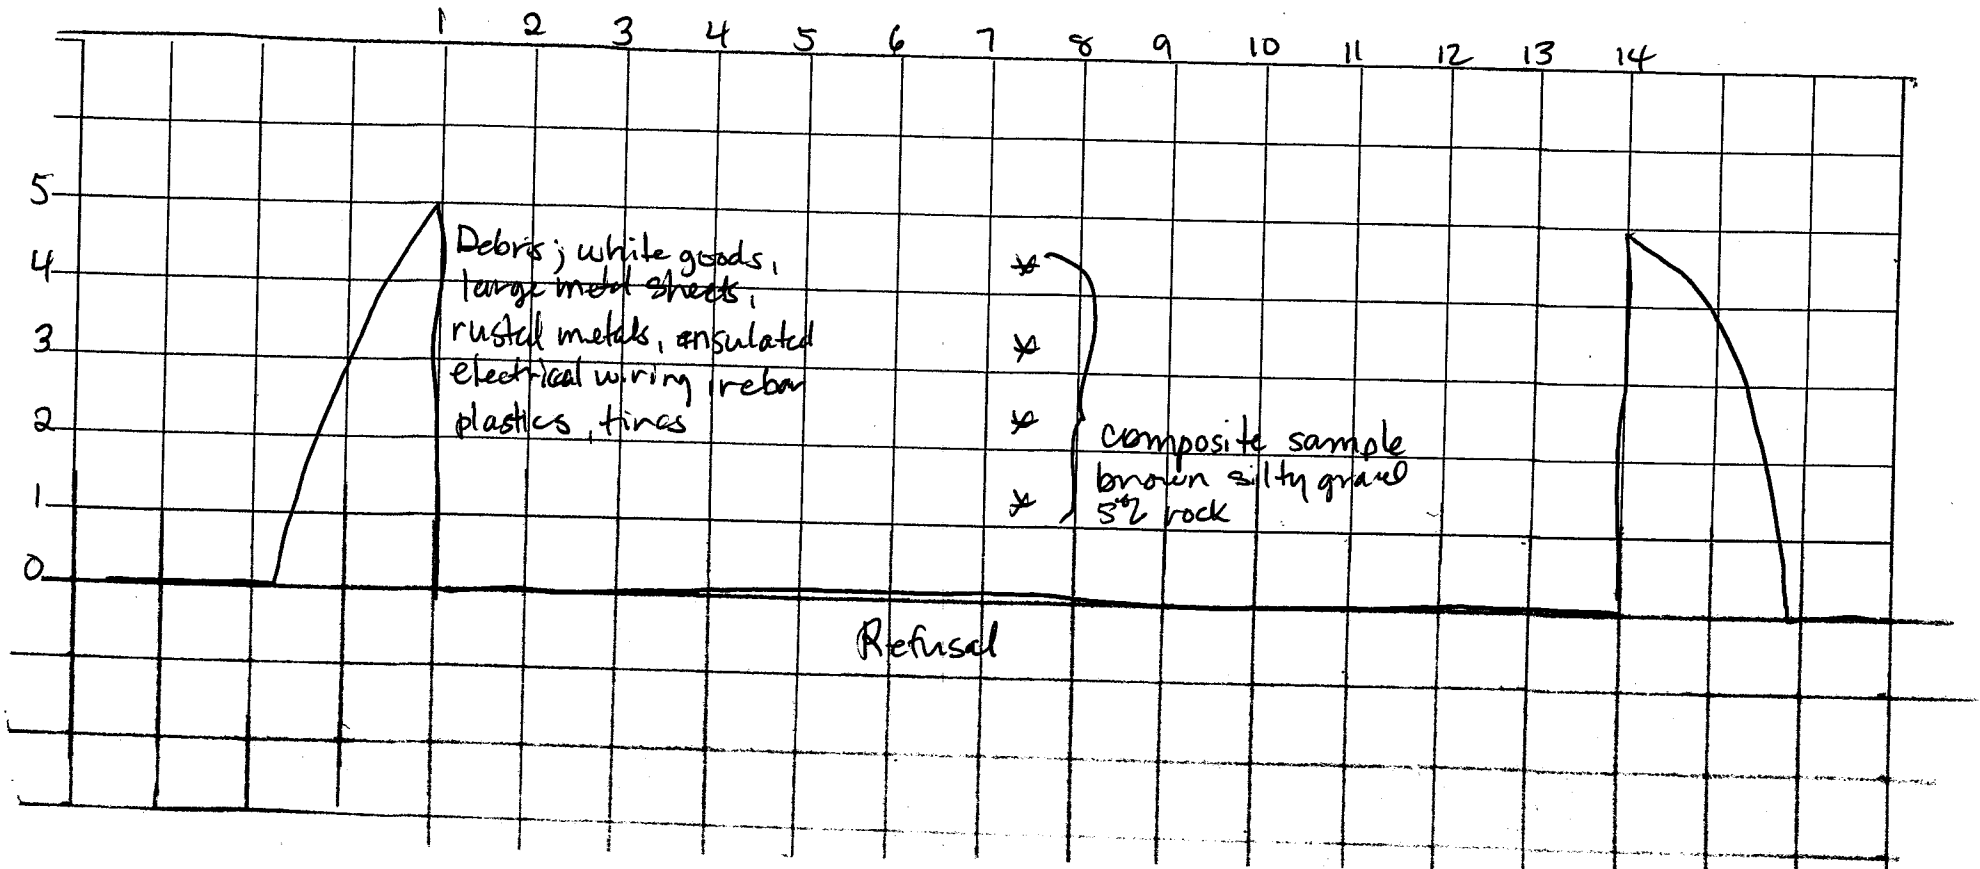 1 2 3 4 5 6 7 8 9 10 11 12 13 14
5
4
3
2
1
0
Debris; white goods,
large metal sheets,
rusted metals, insulated
electrical wiring, rebar
plastics, tires
composite sample
brown silty gravel
5% rock
Refusal